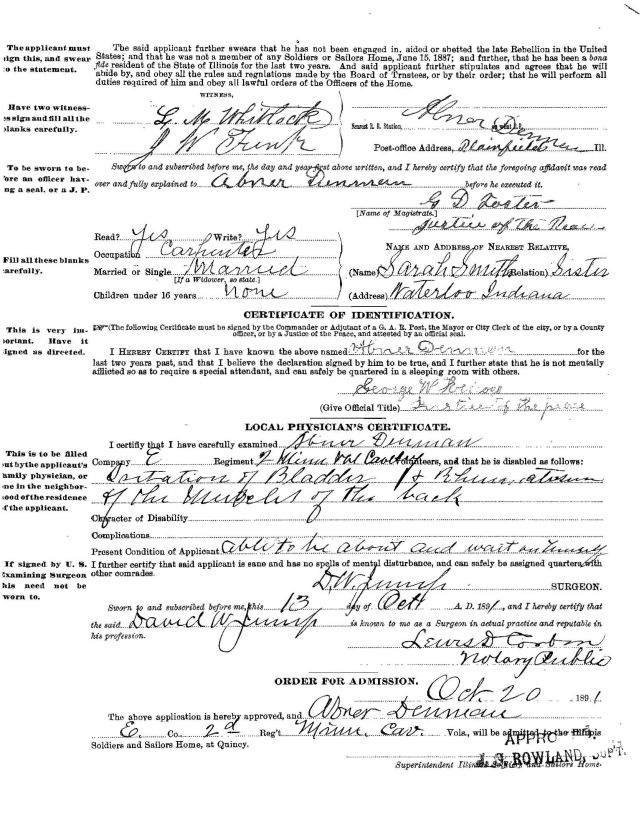 The applicant must
sign this, and swear
to the statement.
The said applicant further swears that he has not been engaged in, aided or abetted the late Rebellion in the United
States; and that he was not a member of any Soldiers or Sailors Home, June 15, 1887; and further, that he has been a bona
fide resident of the State of Illinois for the last two years. And said applicant further stipulates and agrees that he will
abide by, and obey all the rules and regulations made by the Board of Trustees, or by their order; that he will perform all
duties required of him and obey all lawful orders of the Officers of the Home.
WITNESS,
Have two witness-
es sign and fill all the
blanks carefully.
L. M. Whitlock
J W Funk
Abner Denman
Nearest R. R. Station,
Post-office Address, Plainfield Ill.
To be sworn to be-
fore an officer hav-
ing a seal, or a J. P.
Sworn to and subscribed before me, the day and year first above written, and I hereby certify that the foregoing affidavit was read
over and fully explained to Abner Denman before he executed it.
G D Foster
[Name of Magistrate.]
Justice of the Peace
Fill all these blanks
carefully.
Read? Yes Write? Yes
Occupation Carpenter
Married or Single Married
[If a Widower, so state.]
Children under 16 years None
NAME AND ADDRESS OF NEAREST RELATIVE,
(Name) Sarah Smith (Relation) Sister
(Address) Waterloo Indiana
CERTIFICATE OF IDENTIFICATION.
This is very im-
portant. Have it
signed as directed.
(The following Certificate must be signed by the Commander or Adjutant of a G. A. R. Post, the Mayor or City Clerk of the city, or by a County
officer, or by a Justice of the Peace, and attested by an official seal.
I HEREBY CERTIFY that I have known the above named Abner Denman for the
last two years past, and that I believe the declaration signed by him to be true, and I further state that he is not mentally
afflicted so as to require a special attendant, and can safely be quartered in a sleeping room with others.
George W
(Give Official Title) Justice of the peace
LOCAL PHYSICIAN'S CERTIFICATE.
This is to be filled
out by the applicant's
family physician, or
one in the neighbor-
hood of the residence
of the applicant.
I certify that I have carefully examined Abner Denman
Company E Regiment 2 Minn Vol Cav Volunteers, and that he is disabled as follows:
Irritation of Bladder & Rheumatism
of the Muscles of the back
Character of Disability
Complications
Present Condition of Applicant able to be about and wait on himself
If signed by U. S.
Examining Surgeon
this need not be
sworn to.
I further certify that said applicant is sane and has no spells of mental disturbance, and can safely be assigned quarters with
other comrades.
D. W. Jump SURGEON.
Sworn to and subscribed before me, this 13 day of Oct A. D. 1891, and I hereby certify that
the said David W Jump is known to me as a Surgeon in actual practice and reputable in
his profession.
Lewis D
Notary Public
ORDER FOR ADMISSION.
Oct. 20 1891
The above application is hereby approved, and Abner Denman
E. Co. 2d Reg't Minn. Cav. Vols., will be admitted to the Illinois
Soldiers and Sailors Home, at Quincy.
J. G. ROWLAND, SUP'T.
Superintendent Illinois Soldiers and Sailors Home.